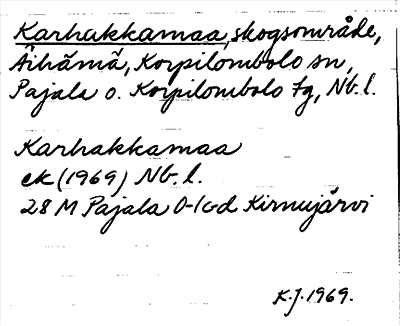 Karhakkamaa, skogsområde,
Äihämä, Korpilombolo sn,
Pajala o. Korpilombolo tg, Nb. l.
Karhakkamaa
ek (1969) Nb. l.
28 M Pajala Kirnujärvi
K.J. 1969.